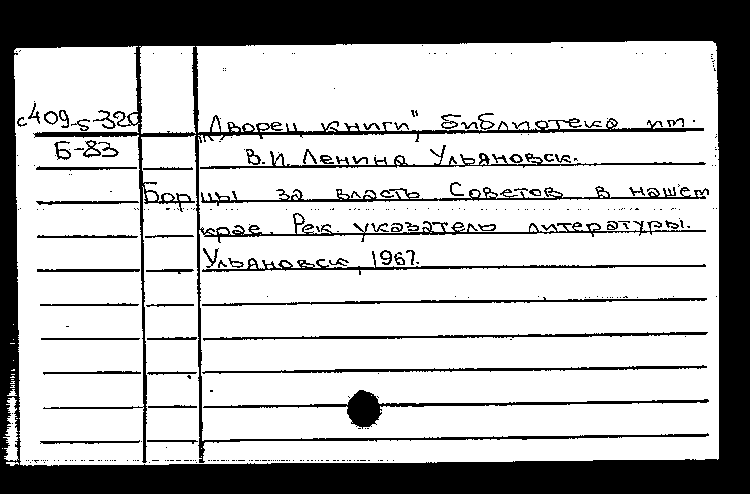 с409-5-320
„Дворец книги", библиотека им.
Б-83
В.И. Ленина Ульяновск.
Борцы за власть Советов в нашем
крае. Рек. указатель литературы.
Ульяновск, 1967.